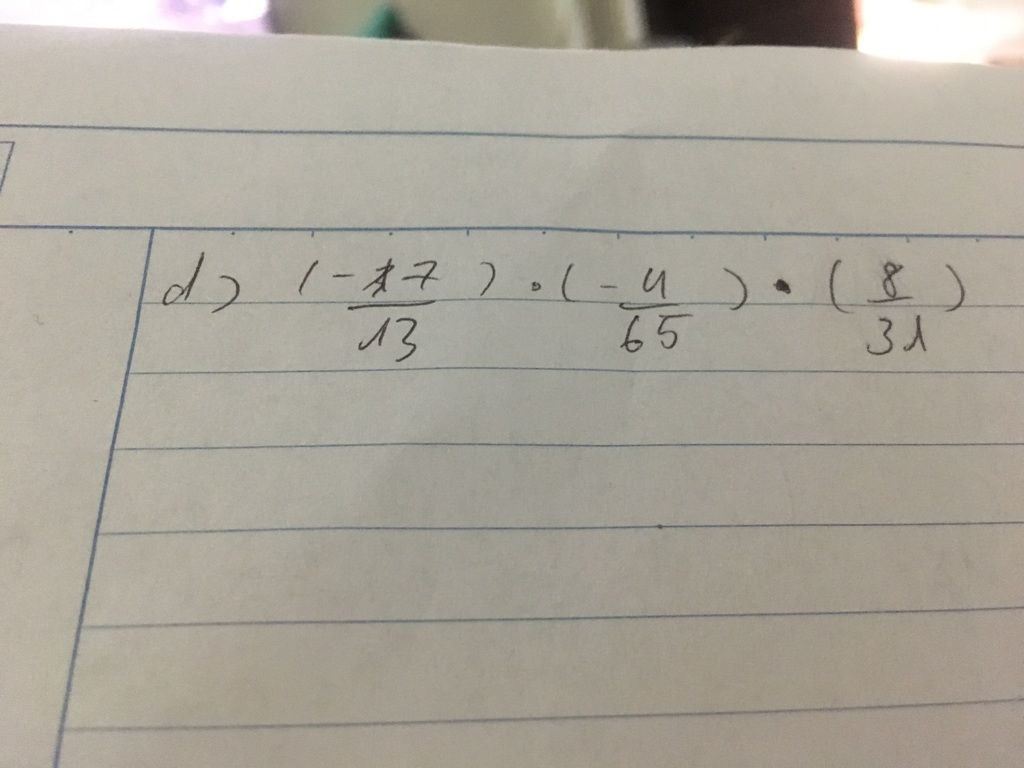 d) (-17/13) . (-4/65) . (8/31)